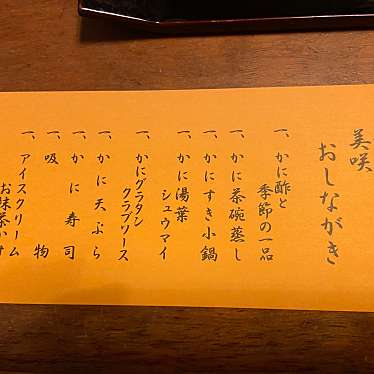 美咲
おしながき
一、かに酢と
季節の一品
一、かに茶碗蒸し
一、かにすき小鍋
一、かに湯葉
シュウマイ
一、かにグラタン
クラブソース
一、かに天ぷら
一、かに寿司
一、吸物
一、アイスクリーム
お味茶かけ